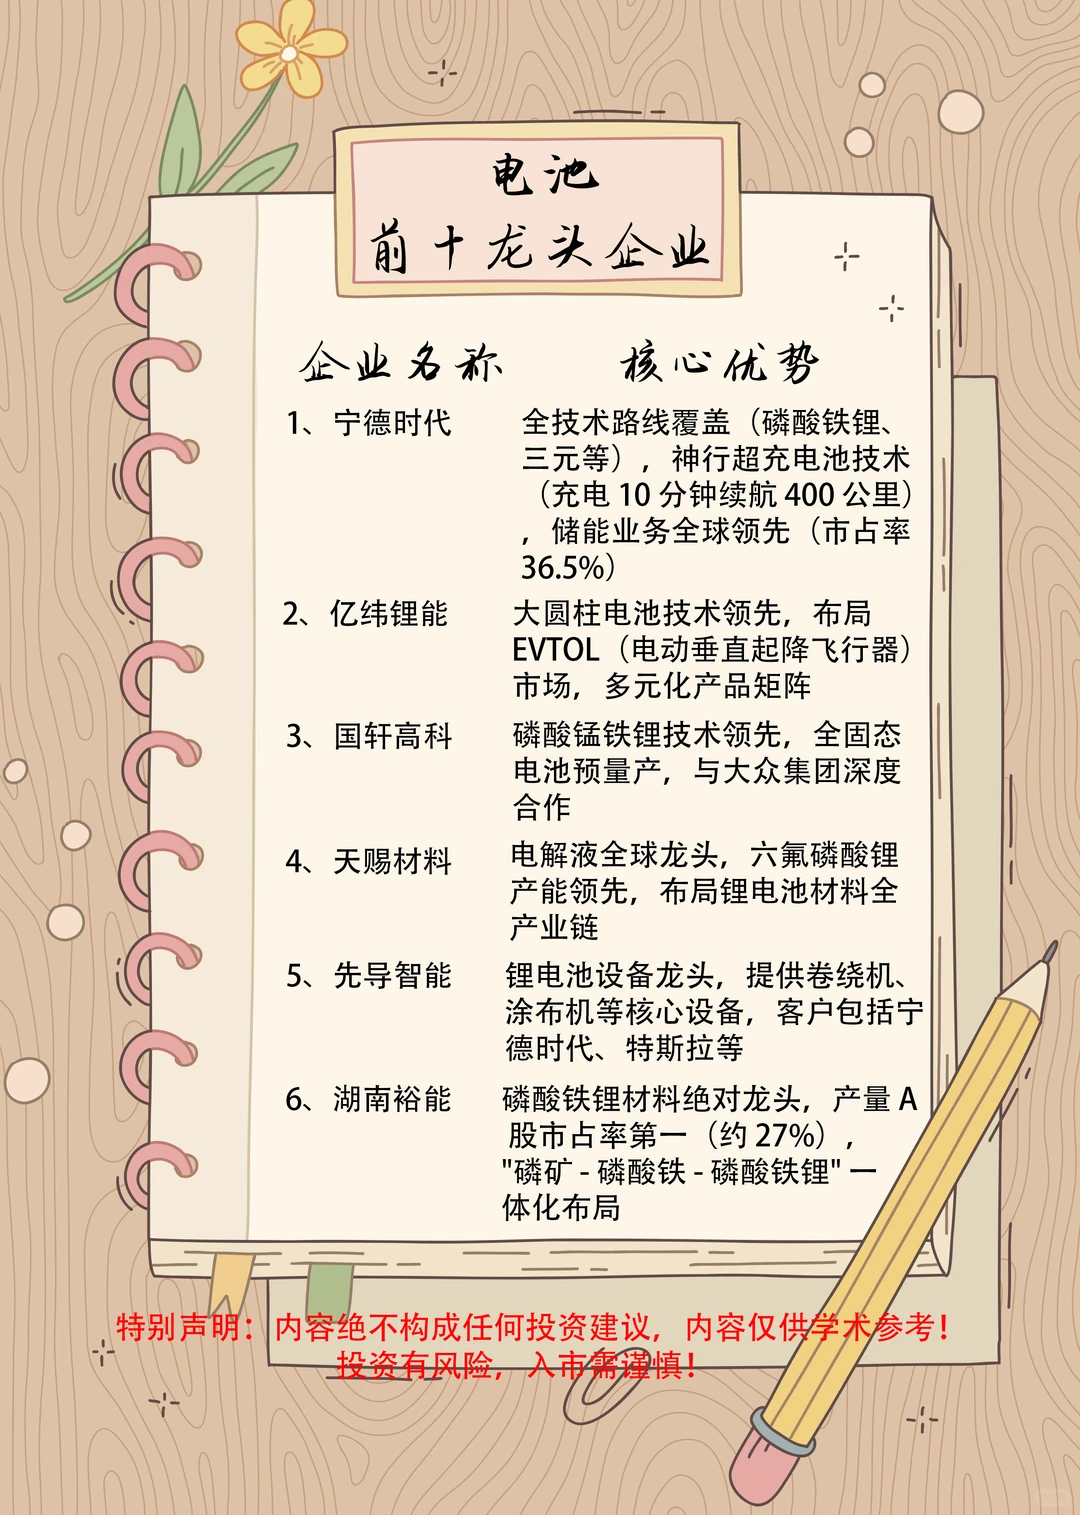 电池
前十龙头企业
企业名称 核心优势
1、宁德时代 全技术路线覆盖（磷酸铁锂、
三元等），神行超充电池技术
（充电 10 分钟续航 400 公里）
，储能业务全球领先（市占率
36.5%）
2、亿纬锂能 大圆柱电池技术领先，布局
EVTOL（电动垂直起降飞行器）
市场，多元化产品矩阵
3、国轩高科 磷酸锰铁锂技术领先，全固态
电池预量产，与大众集团深度
合作
4、天赐材料 电解液全球龙头，六氟磷酸锂
产能领先，布局锂电池材料全
产业链
5、先导智能 锂电池设备龙头，提供卷绕机、
涂布机等核心设备，客户包括宁
德时代、特斯拉等
6、湖南裕能 磷酸铁锂材料绝对龙头，产量 A
股市占率第一（约 27%），
"磷矿 - 磷酸铁 - 磷酸铁锂" 一
体化布局
特别声明：内容绝不构成任何投资建议，内容仅供学术参考！
投资有风险，入市需谨慎！